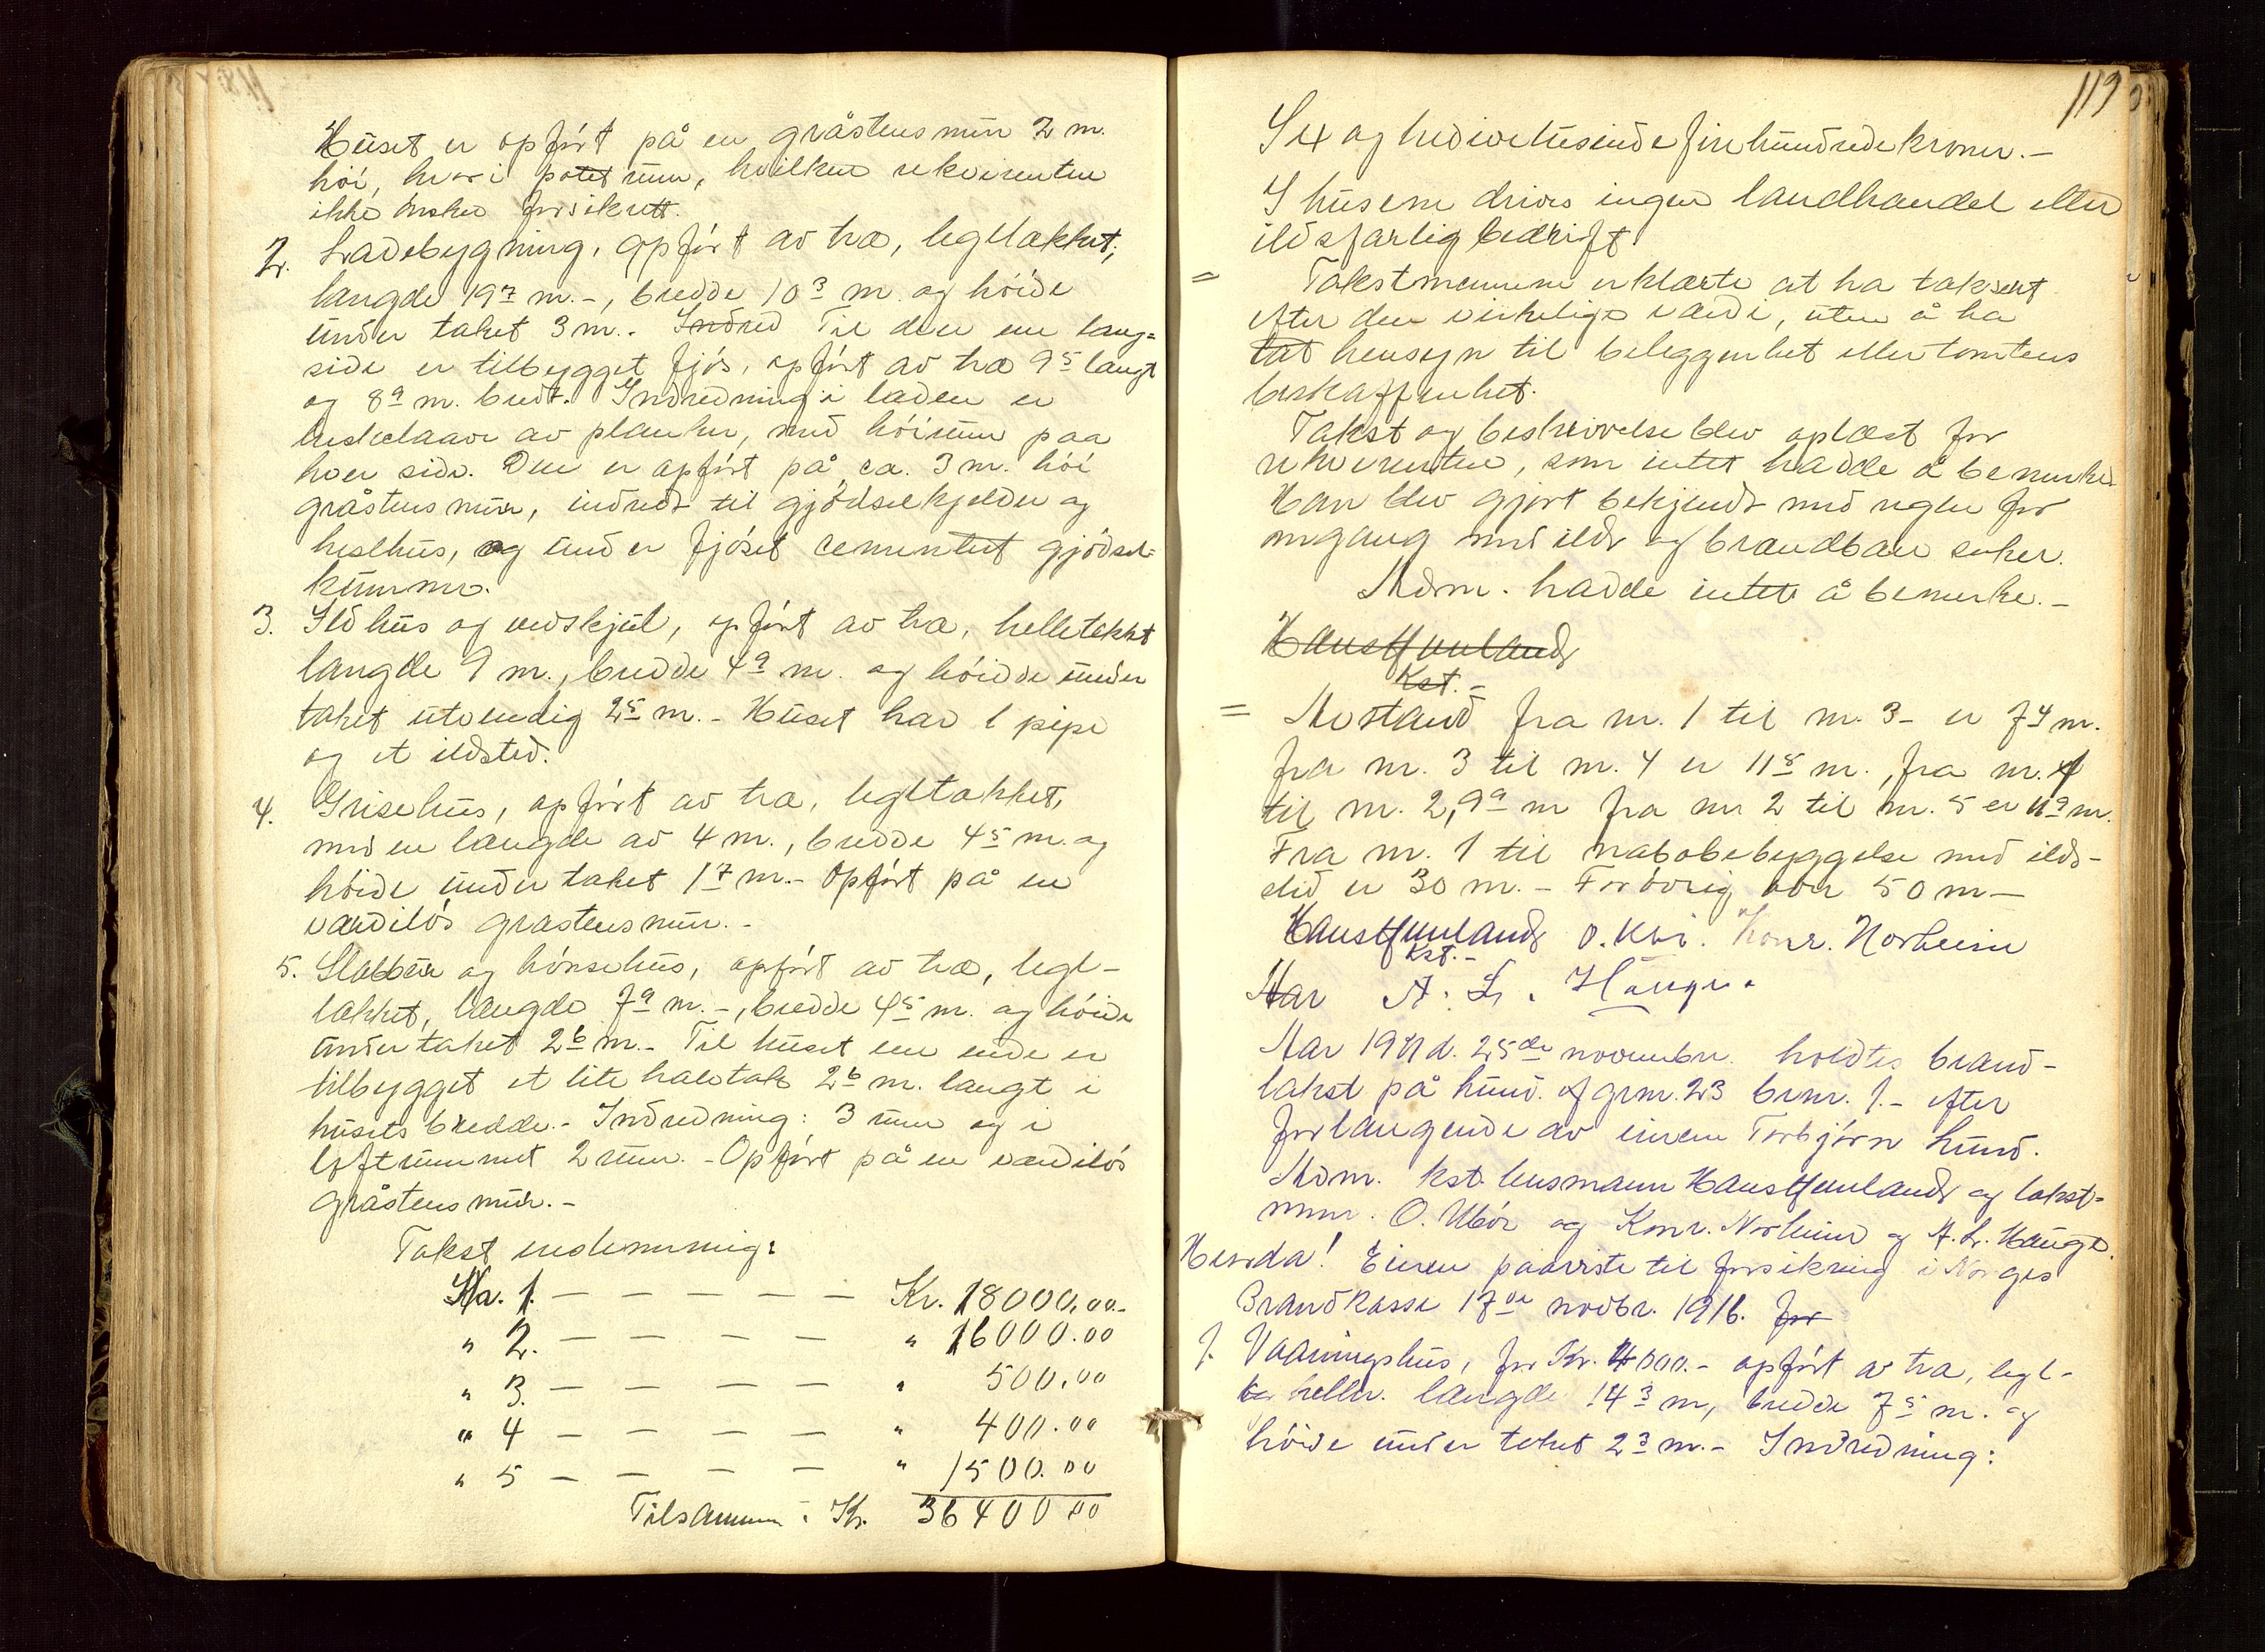 Huset er opført på en gråstensmur 2 m.
høi, hvori potetrum, hvilken rekvirenten
ikke ønsker forsikrett.
2. Ladebygning, opført av træ, tegltækket,
længde 19⁷ m.-, bredde 10³ m. og høide
under taket 3 m.- Indred Til den ene lang-
side er tilbygget fjøs, opført av træ 9⁵ langt
og 8⁹ m. bredt. Indredning i laden er
treskelaave av planker, med høirum paa
hver side. Den er opført på ca. 3 m. høi
gråstensmur, indredt til gjødselkjelder og
hesthus, og under fjøset cementert gjødsel-
kummer.
3. Ildhus og vedskjul, opført av træ, helletekket
længde 9 m., bredde 4⁹ m. og høidde under
taket utvendig 2⁵ m.- Huset har 1 pipe
og et ildsted.
4. Grisehus, opført av træ, tegltækket,
med en længde av 4 m., bredde 4⁵ m. og
høide under taket 1⁷ m.- Opført på en
værdiløs grastensmur.-
5. Stabbur og hønsehus, opført av træ, tegl-
tækket, længde 7⁹ m.-, bredde 4⁵ m. og høide
under taket 2⁶ m.- Til huset ene ende er
tilbygget et lite halvtak 2⁶ m. langt i
husets bredde.- Indredning: 3 rum og i
loftrummet 2 rum.- Opført på en værdiløs
gråstensmur.-
Takst
Ha. 1. — — — — — Kr. 18000.00-
" 2. — — — — " 16000.00
" 3. — — — — " 500.00
" 4 — — — — " 400.00
" 5 — — — — " 1500.00
Tilsammen: Kr. 36400.00
119
Sex og tredivetusinde fire hundrede kroner.-
I husene drives ingen landhandel eller
ildsfarlig bedrift.
= Takstmennene erklærte at ha taksert
efter den virkelige værdi, uten å ha
tat hensyn til beleggenhet eller tomtens
beskaffenhet.
Takst og beskrivelse blev oplæst for
rekvirenten, som intet hadde å bemerke.
Han blev gjort bekjendt med reglene for
omgang med ild og brandbare saker.
Mdm. hadde intet å bemerke.-
Hans
Kst.-
= Avstand fra nr. 1 til nr. 3- er 7⁴ m.
fra nr. 3 til nr. 4 er 11⁸ m., fra nr. 4
til nr. 2, 9⁹ m fra nr 2 til nr. 5 er 11⁹ m.
Fra nr. 1 til nabobebyggelse med ild-
sted er 30 m.- Forøvrig over 50 m-
Hans O. Konr. Norheim
Kst.-
Aar A. L. Hauge.
Aar 1921 d. 25de november. holdtes brand-
takst på hund. af grnr. 23 brnr. 1.- efter
forlangende av eieren Torbjørn hund.
Mdm. kst. lensmann Hans og takst-
menn. O. og Konr. Norheim og A. L. Hauge.
Eieren paaviste til forsikring i Norges
Brandkasse 17de novbr. 1916. for
1. Vaaningshus, for Kr. 4000.- opført av træ, tegl-
tæ heller. længde 14³ m, bredde 7⁵ m. og
høide under taket 2³ m.- Indredning: